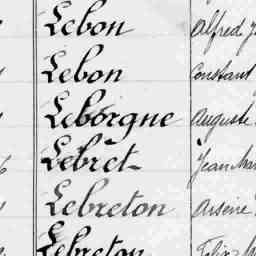 Lebon Alfred
Lebon Constant
Leborgne Auguste
Lebret Jean
Lebreton Arsène
Lebreton Félix